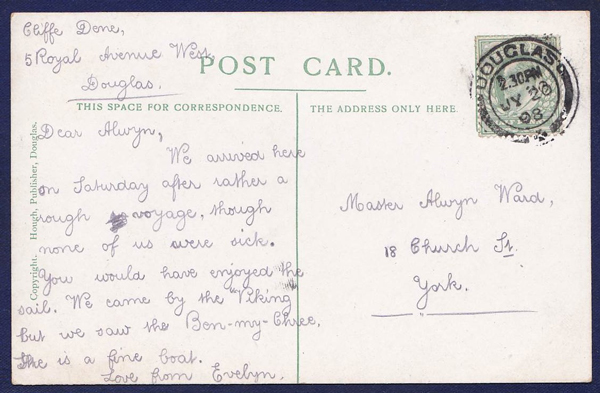 Cliffe Dene,
5 Royal Avenue West,
Douglas.
POST CARD.
THIS SPACE FOR CORRESPONDENCE.
THE ADDRESS ONLY HERE.
Copyright. Hough, Publisher, Douglas.
DOUGLAS
2.30PM
JY 20
08
Dear Alwyn,
We arrived here
on Saturday after rather a
rough voyage, though
none of us were sick.
You would have enjoyed the
sail. We came by the "Viking
but we saw the Ben-my-Chree.
She is a fine boat.
Love from Evelyn.
Master Alwyn Ward,
18 Church St.
York.